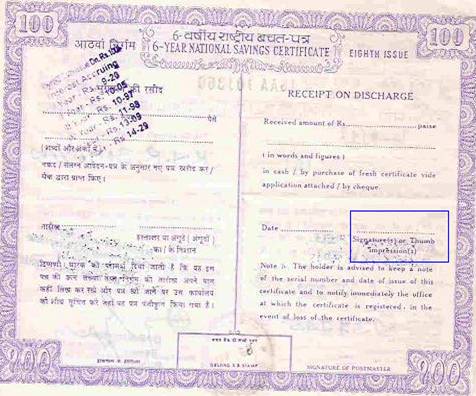 100
100
6-वर्षीय राष्ट्रीय बचत-पत्र
आठवां निर्गम
6-YEAR NATIONAL SAVINGS CERTIFICATE
EIGHTH ISSUE
Accruing
9-20
10-05
10-97
11-98
13-09
Rs. 14-29
की रसीद
RECEIPT ON DISCHARGE
Received amount of Rs. paise
पैसे
(शब्दों और अंकों में)
(in words and figures)
नकद / संलग्न आवेदन-पत्र के अनुसार नए पत्र खरीद कर /
चैक द्वारा प्राप्त किए।
in cash / by purchase of fresh certificate vide
application attached / by cheque.
तारीख
Date
हस्ताक्षर या अंगूठे (अंगूठों)
का / के निशान
Signature(s) or Thumb
impression(s)
टिप्पणी: धारक को परामर्श दिया जाता है कि वह इस
पत्र की क्रम संख्या तथा निर्गम की तारीख अपने पास
कहीं लिख कर रखें और पत्र खो जाने पर उस कार्यालय
को शीघ्र सूचित करें जहाँ यह पत्र पंजीकृत किया गया है।
Note :- The holder is advised to keep a note
of the serial number and date of issue of this
certificate and to notify immediately the office
at which the certificate is registered, in the
event of loss of the certificate.
100
100
SIGNATURE OF POSTMASTER